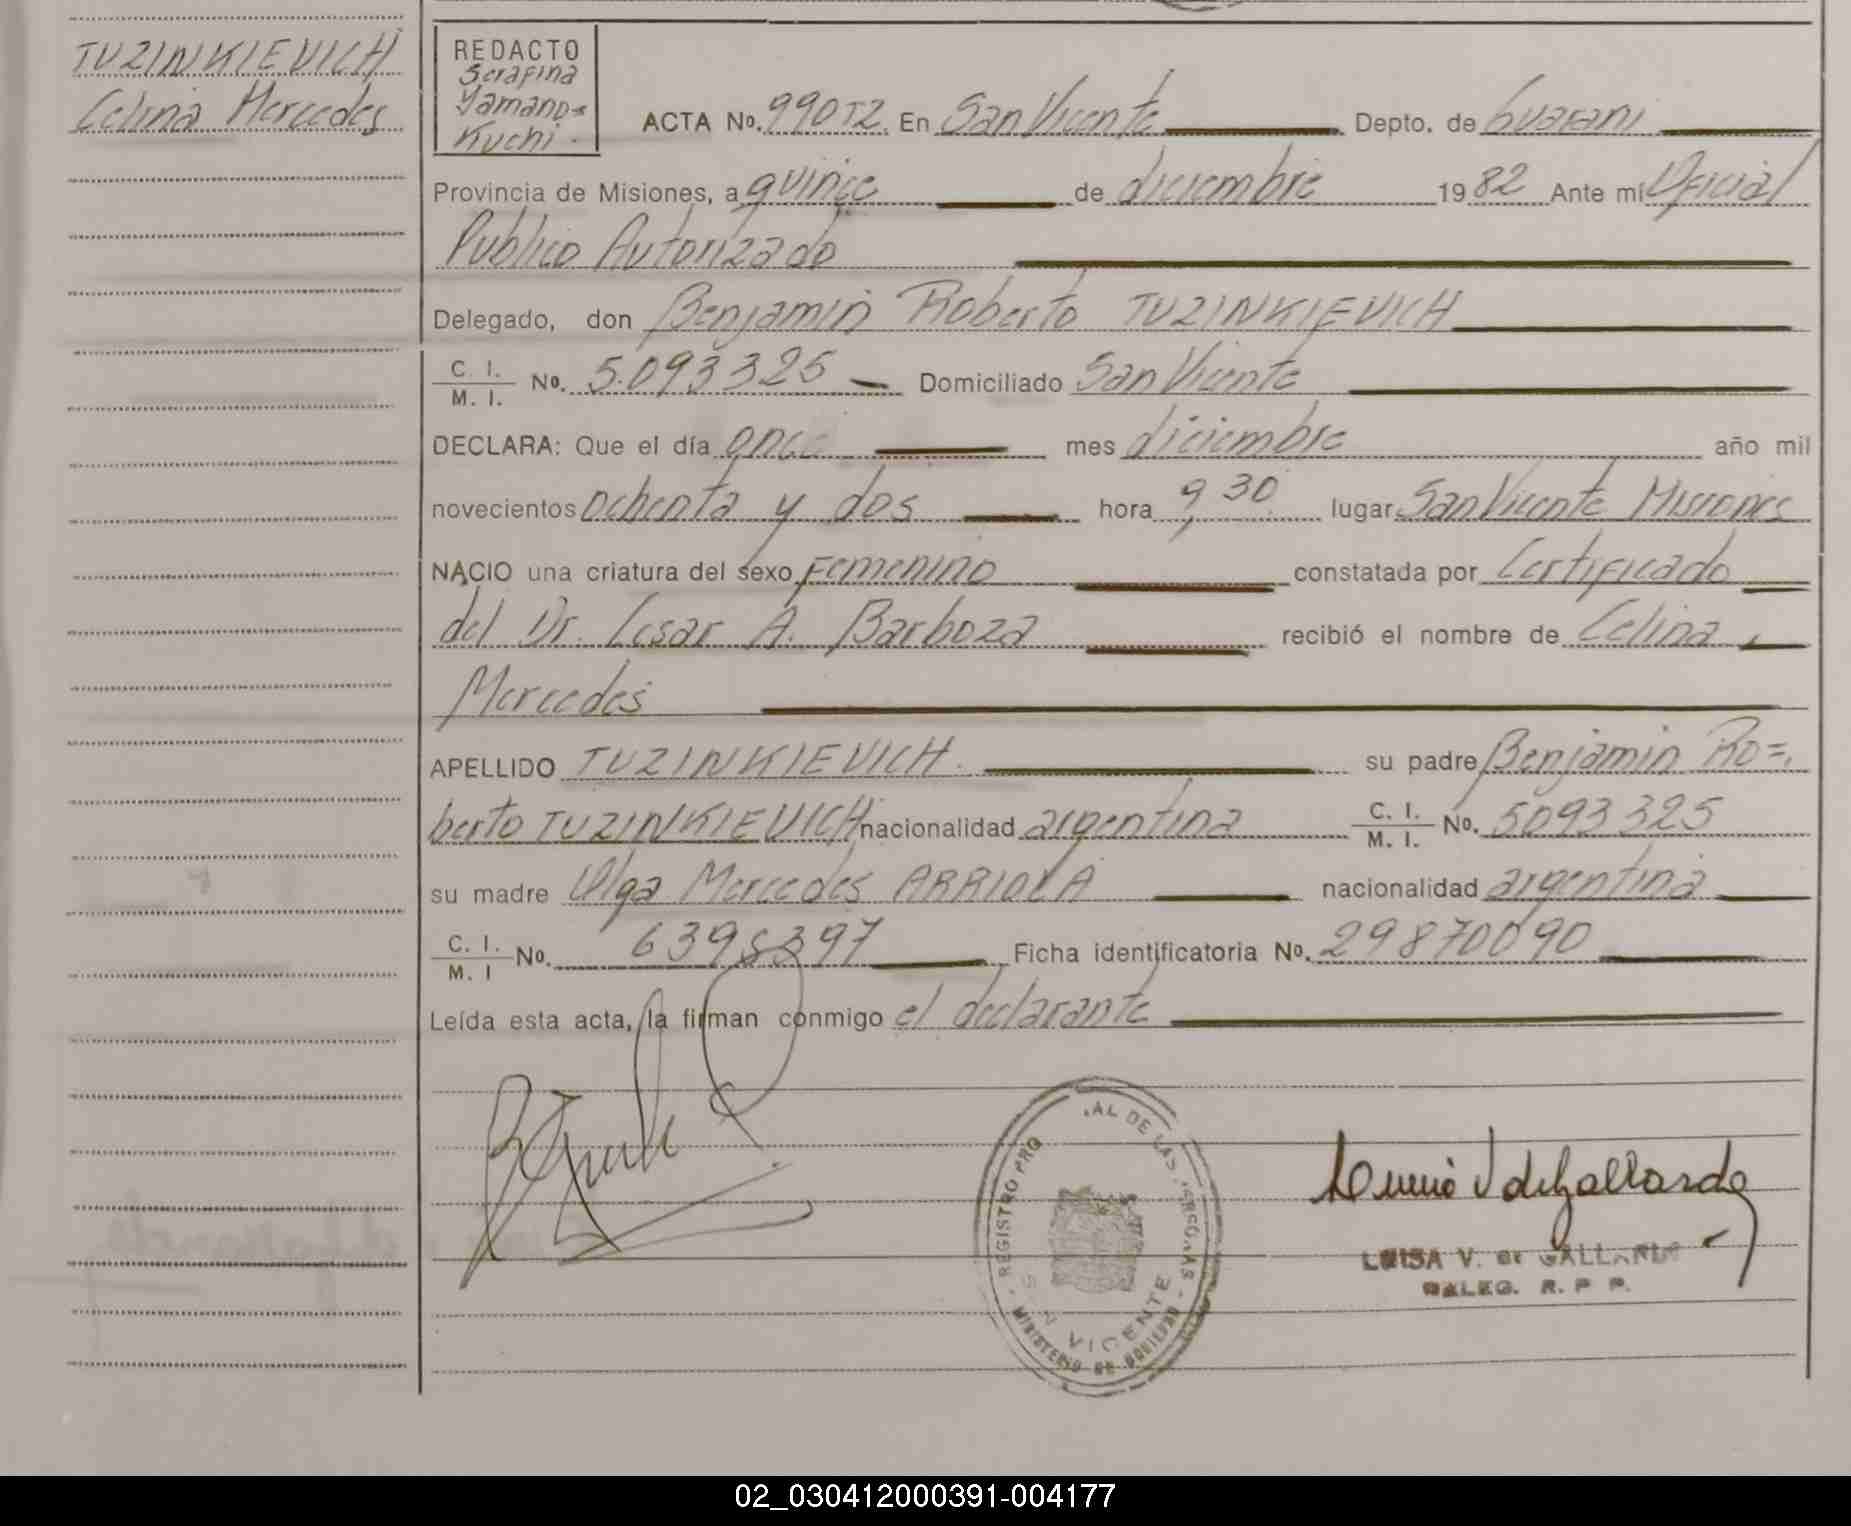 TUZINKIEVICH
Celina Mercedes
REDACTO
Serafina
Yamano=
Kuchi.
ACTA No. 990 T2. En San Vicente Depto. de Guarani
Provincia de Misiones, a quince de diciembre 1982 Ante mi Oficial
Publico Autorizado
Delegado, don Benjamin Roberto TUZINKIEVICH
C. I. / M. I. No. 5.093325 Domiciliado San Vicente
DECLARA: Que el día once mes diciembre año mil
novecientos ochenta y dos hora 9,30 lugar San Vicente Misiones
NACIO una criatura del sexo Femenino constatada por Certificado
del Dr. Cesar A. Barboza recibió el nombre de Celina
Mercedes
APELLIDO TUZINKIEVICH. su padre Benjamin Ro=
berto TUZINKIEVICH nacionalidad argentina C. I. / M. I. No. 5093325
su madre Olga Mercedes ARRIOLA nacionalidad argentina
C. I. / M. I No. 6398397 Ficha identificatoria No. 29870090
Leída esta acta, la firman conmigo el declarante
REGISTRO PRO AL DE LAS PERSONAS
VICENTE
MINISTERIO DE GOBIERNO
LUISA V. de GALLARDO
DELEG. R. P P.
02_030412000391-004177